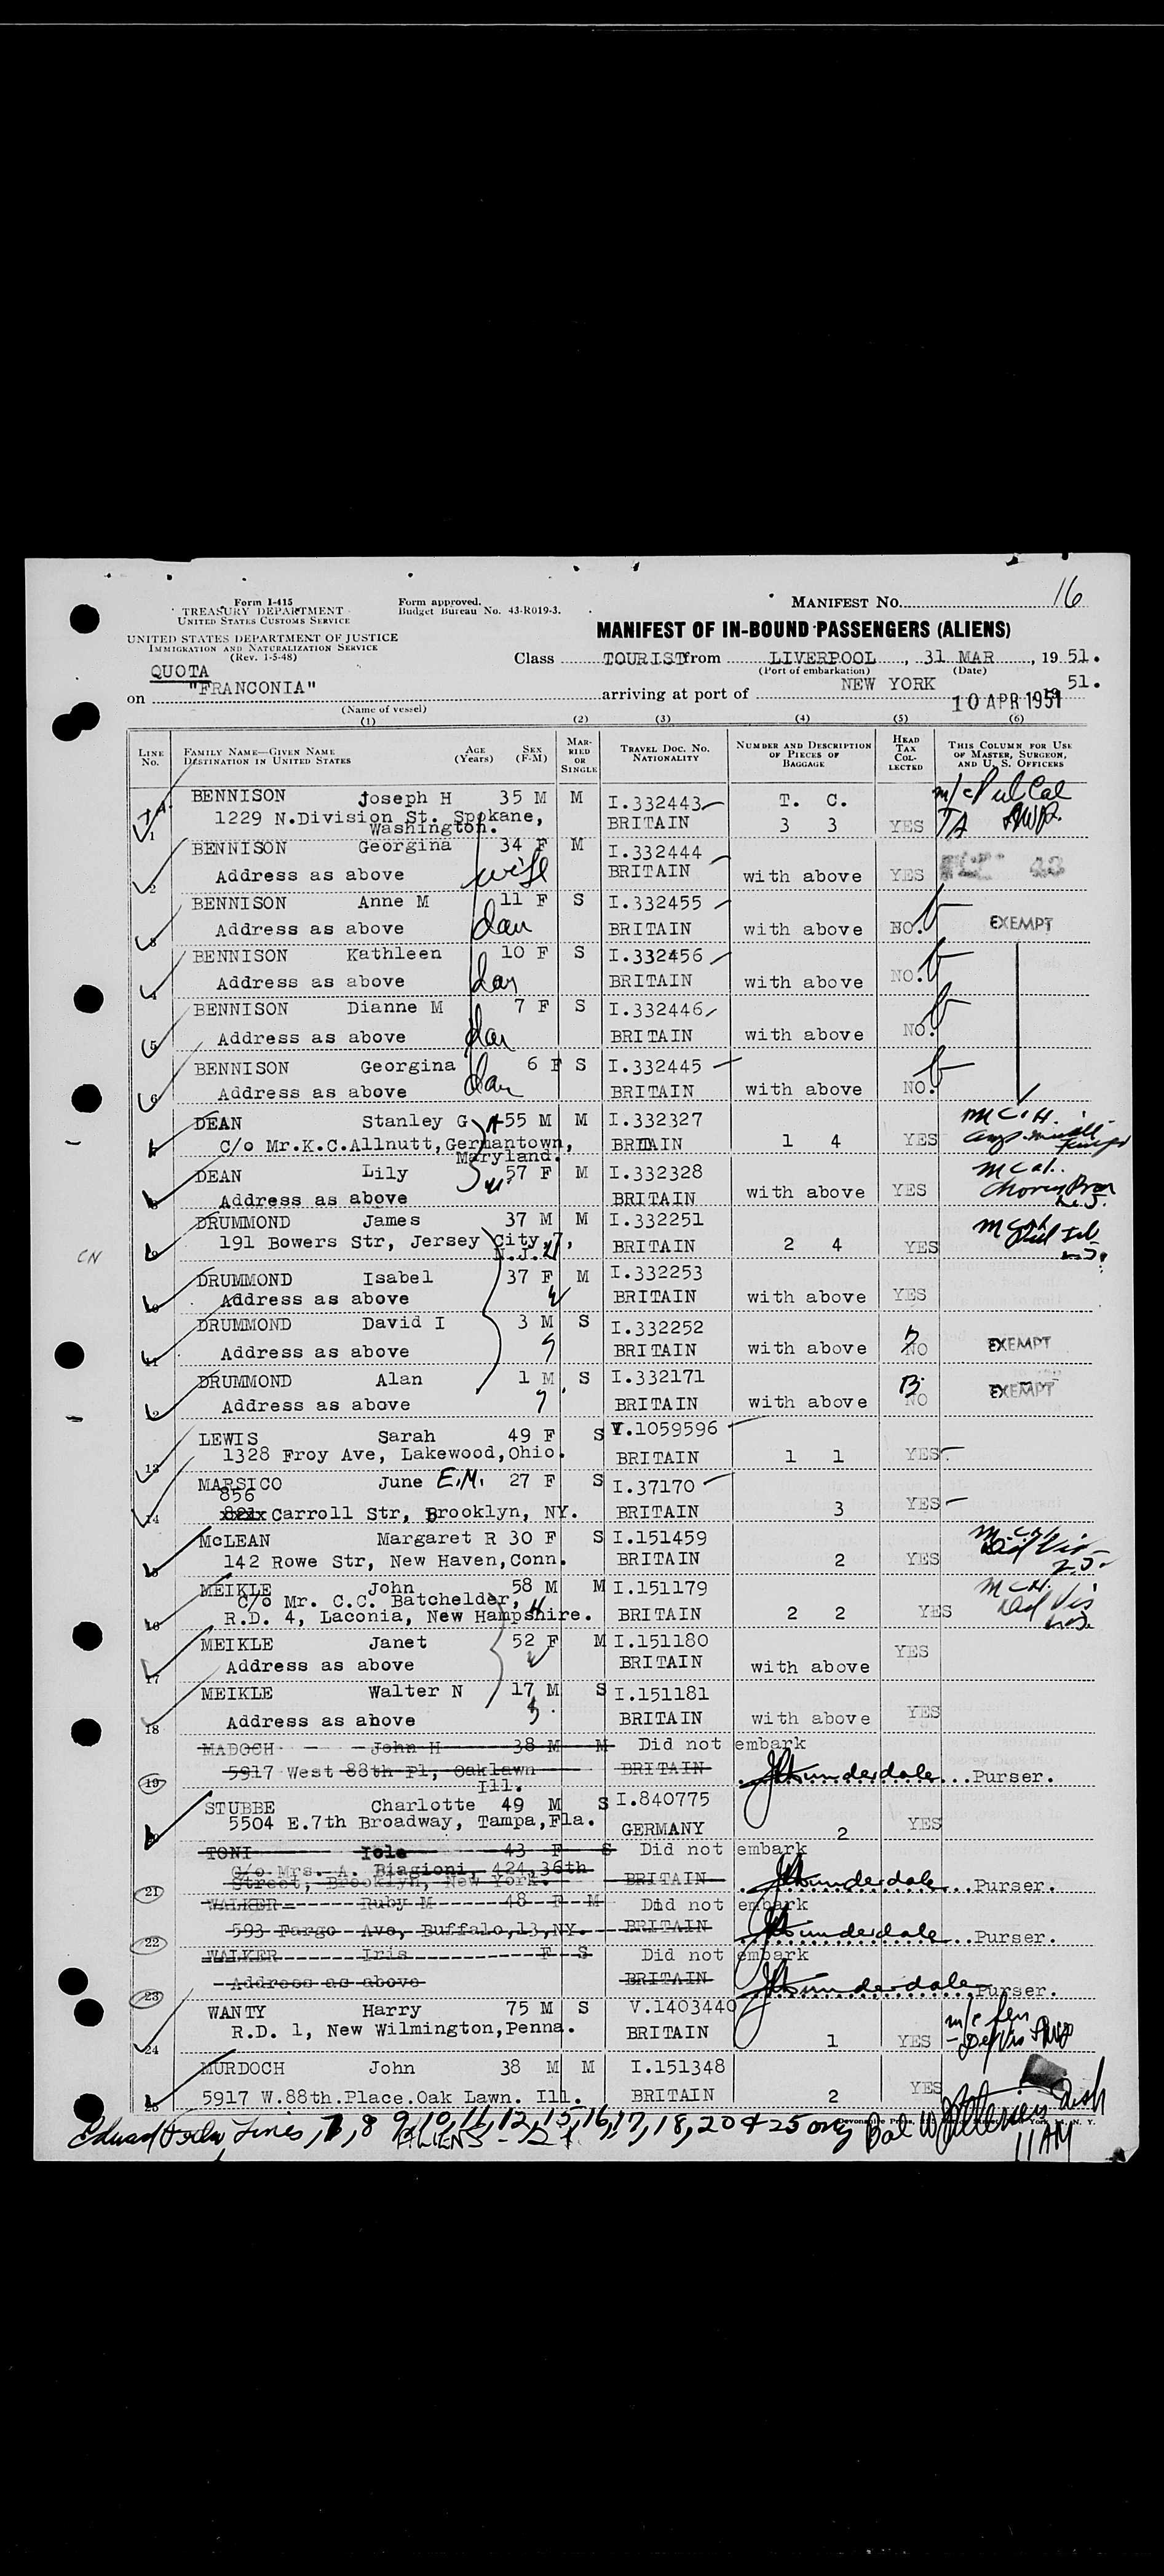 Form I-415
TREASURY DEPARTMENT
UNITED STATES CUSTOMS SERVICE
Form approved.
Budget Bureau No. 43-R019-3.
MANIFEST No. 16
UNITED STATES DEPARTMENT OF JUSTICE
IMMIGRATION AND NATURALIZATION SERVICE
(Rev. 1-5-48)
MANIFEST OF IN-BOUND PASSENGERS (ALIENS)
Class TOURIST from LIVERPOOL, 31 MAR, 1951.
(Port of embarkation) (Date)
QUOTA
on "FRANCONIA" arriving at port of NEW YORK 10 APR 1951 51.
(Name of vessel)
(1) (2) (3) (4) (5) (6)
LINE No. FAMILY NAME—GIVEN NAME DESTINATION IN UNITED STATES AGE (Years) SEX (F-M) MARRIED OR SINGLE TRAVEL DOC. NO. NATIONALITY NUMBER AND DESCRIPTION OF PIECES OF BAGGAGE HEAD TAX COLLECTED THIS COLUMN FOR USE OF MASTER, SURGEON, AND U. S. OFFICERS
BENNISON Joseph H 35 M M I.332443 T. C.
1 1229 N.Division St. Spokane, Washington. BRITAIN 3 3 YES TA
BENNISON Georgina 34 F M I.332444
2 Address as above wife BRITAIN with above YES
BENNISON Anne M 11 F S I.332455
3 Address as above dau BRITAIN with above NO. EXEMPT
BENNISON Kathleen 10 F S I.332456
4 Address as above dau BRITAIN with above NO.
BENNISON Dianne M 7 F S I.332446
5 Address as above dau BRITAIN with above NO.
BENNISON Georgina 6 F S I.332445
6 Address as above dau BRITAIN with above NO.
DEAN Stanley G 55 M M I.332327
C/o Mr.K.C.Allnutt,Germantown, Maryland. BRITAIN 1 4 YES
DEAN Lily 57 F M I.332328
8 Address as above BRITAIN with above YES
DRUMMOND James 37 M M I.332251
9 191 Bowers Str, Jersey City 7, N.J. BRITAIN 2 4 YES
CN
DRUMMOND Isabel 37 F M I.332253
10 Address as above BRITAIN with above YES
DRUMMOND David I 3 M S I.332252
11 Address as above BRITAIN with above NO EXEMPT
DRUMMOND Alan 1 M S I.332171
Address as above BRITAIN with above B. NO EXEMPT
LEWIS Sarah 49 F S V.1059596
13 1328 Froy Ave, Lakewood,Ohio. BRITAIN 1 1 YES
MARSICO June E.M. 27 F S I.37170
856
14 Carroll Str, Brooklyn, NY. BRITAIN 3 YES
McLEAN Margaret R 30 F S I.151459
142 Rowe Str, New Haven,Conn. BRITAIN 2 YES
MEIKLE John 58 M M I.151179
C/o Mr. C.C. Batchelder,
16 R.D. 4, Laconia, New Hampshire. BRITAIN 2 2 YES
MEIKLE Janet 52 F M I.151180
17 Address as above BRITAIN with above YES
MEIKLE Walter N 17 M S I.151181
18 Address as above BRITAIN with above YES
MADOCH John H 38 M M Did not embark
19 5917 West 88th Pl, Oaklawn Ill. BRITAIN Purser.
STUBBE Charlotte 49 M S I.840775
5504 E.7th Broadway, Tampa,Fla. GERMANY 2 YES
TONI Iole 43 F S Did not embark
C/o Mrs. A. Biagioni, 424,36th
21 Street, Brooklyn, New York. BRITAIN Purser.
WALKER Ruby M 48 F M Did not embark
22 593 Fargo Ave, Buffalo,13,NY. BRITAIN Purser.
WALKER Iris F S Did not embark
23 Address as above BRITAIN Purser.
WANTY Harry 75 M S V.1403440
24 R.D. 1, New Wilmington,Penna. BRITAIN 1 YES
MURDOCH John 38 M M I.151348
25 5917 W.88th.Place.Oak Lawn. Ill. BRITAIN 2 YES
Lines, 7, 8 9, 10, 11, 12, 15, 16, 17, 18, 20 & 25 only
ALIENS
11 AM